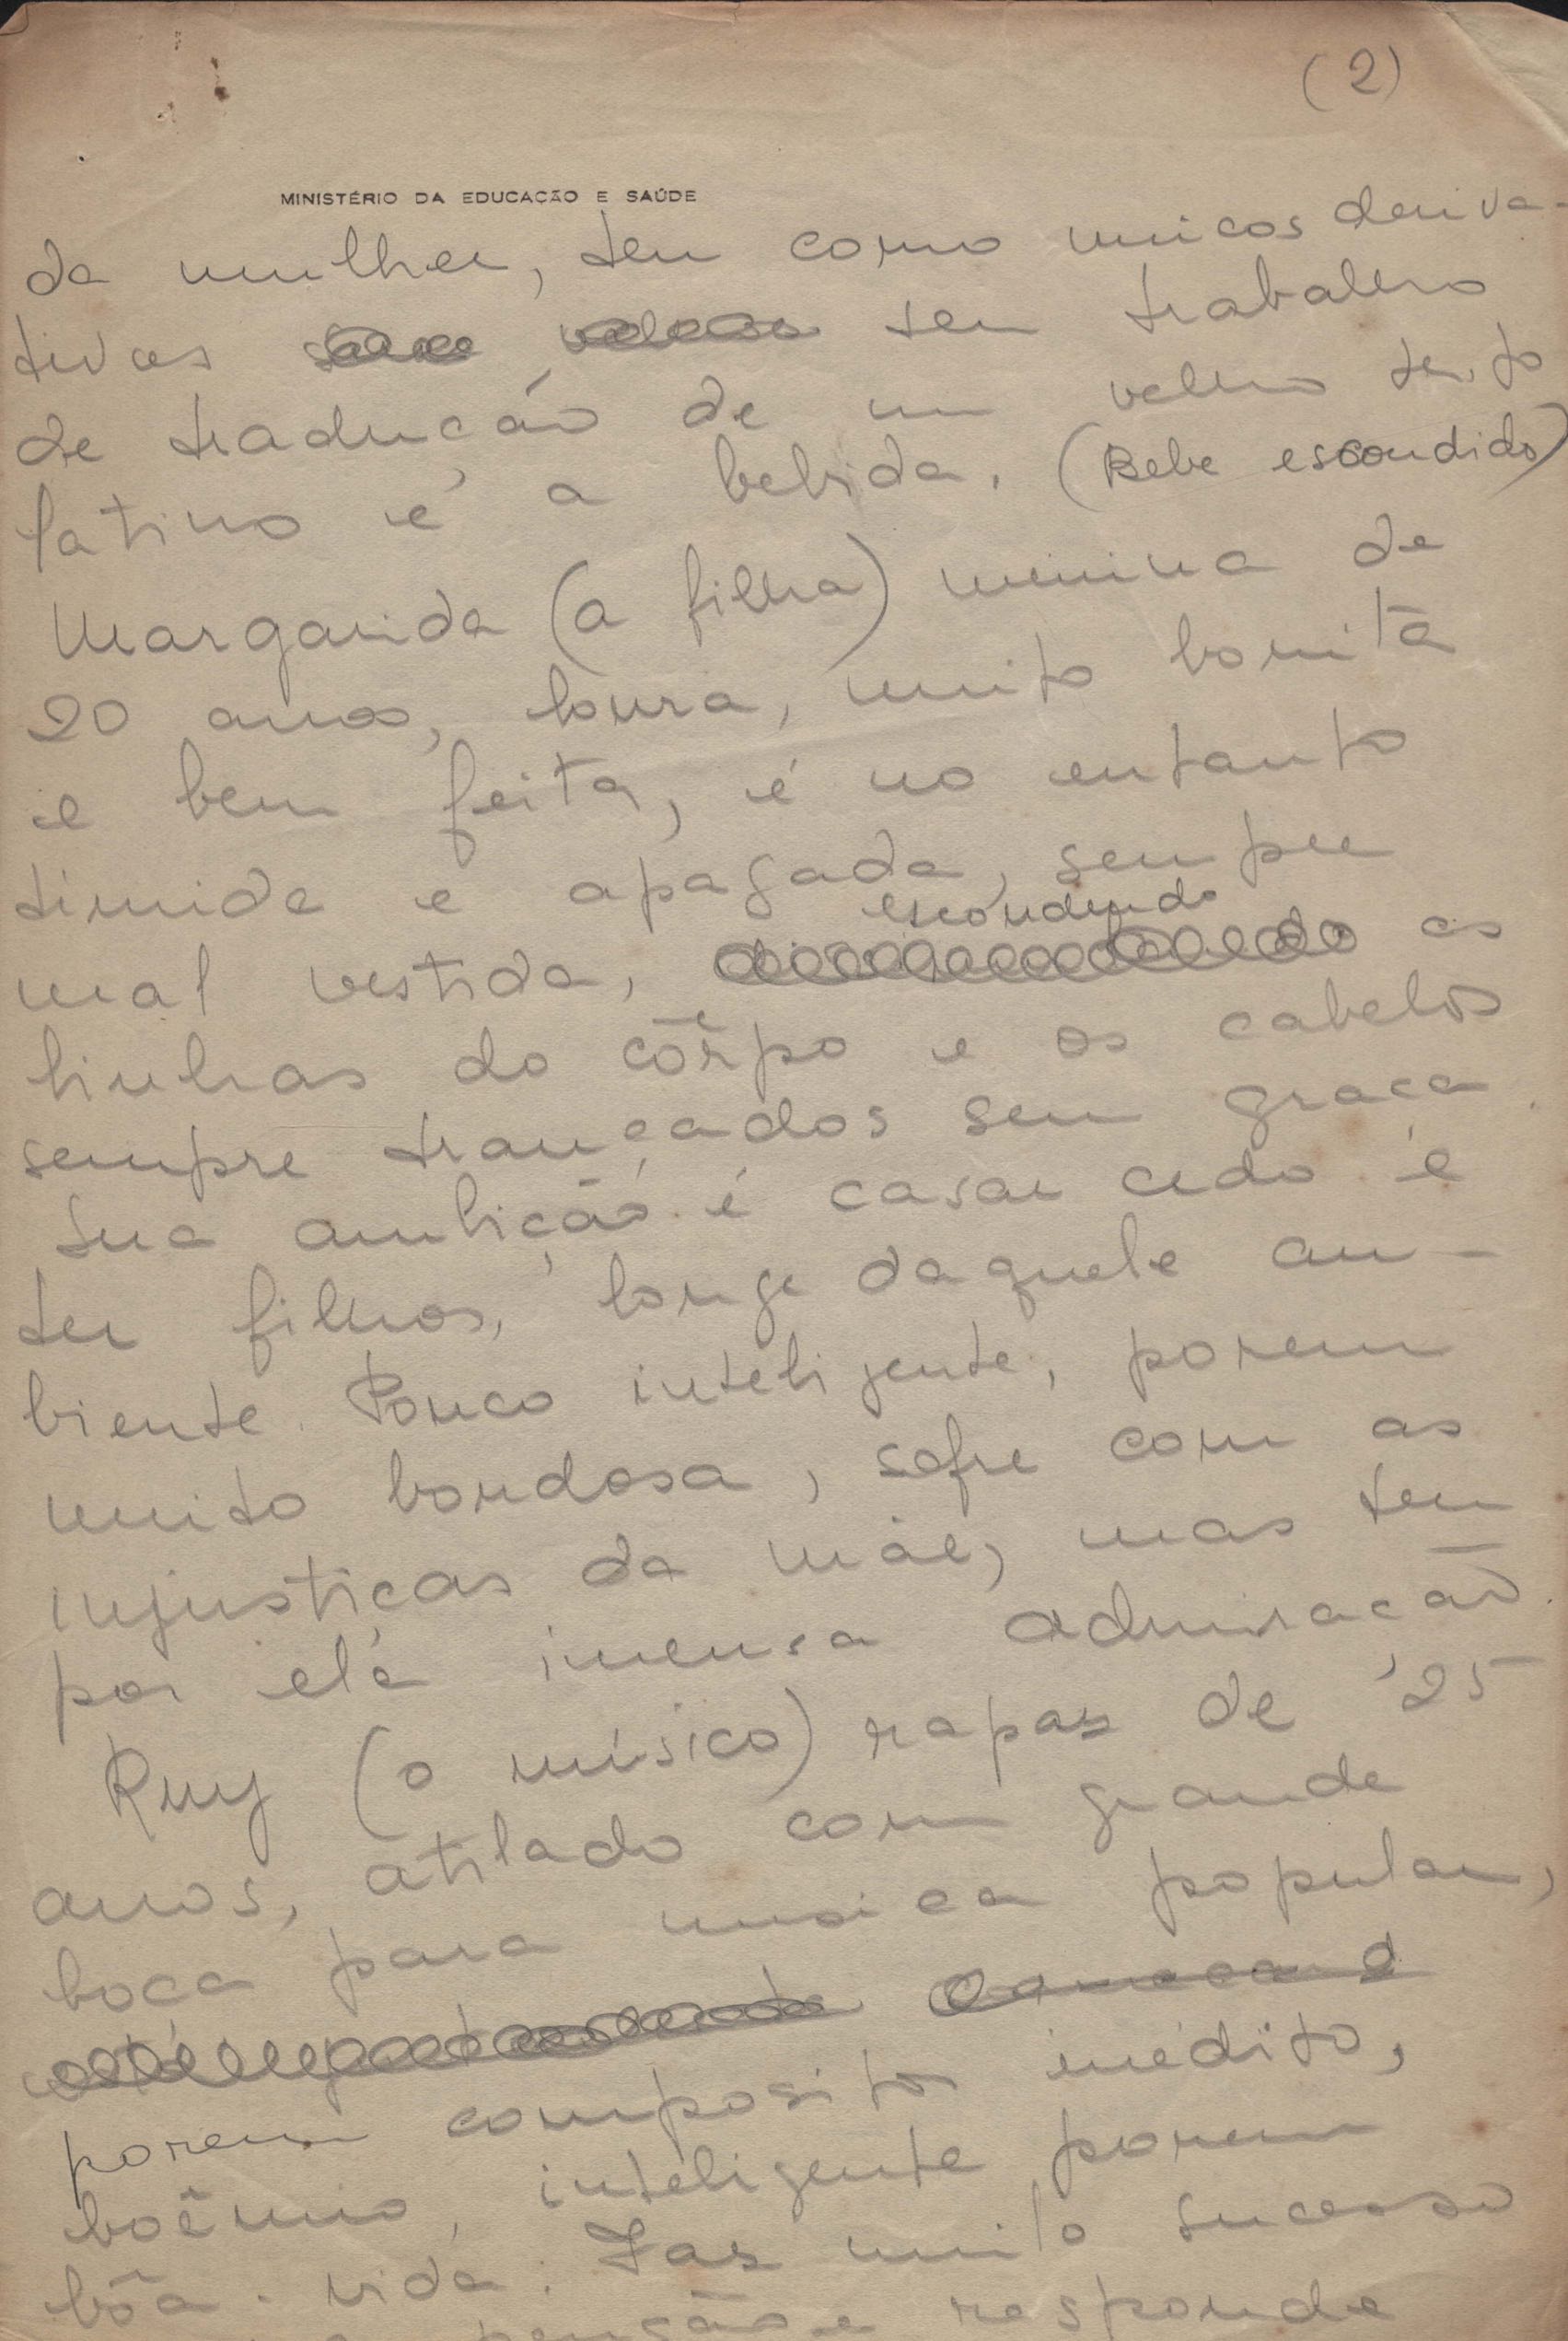 (2)
MINISTÉRIO DA EDUCAÇÃO E SAÚDE
da mulher, tem como unicos deriva-
tivos seu trabalho
de tradução de um velho texto
latino e a bebida. (Bebe escondido)
Margarida (a filha) menina de
20 anos, loura, muito bonita
e bem feita, é no entanto
timida e apagada, sempre
escondendo
mal vestida, as
linhas do côrpo e os cabelos
sempre trançados sem graça.
Sua ambição é casar cedo e
ter filhos, longe daquele am-
biente. Pouco inteligente, porem
muito bondosa, sofre com as
injustiças da mãe, mas tem
por ela imensa admiração.
Ruy (o músico) rapaz de 25
anos, atilado com grande
boça para musica popular,
porem compositor inédito,
boêmio, inteligente porem
bôa-vida. Faz muito sucesso
pensão e responde